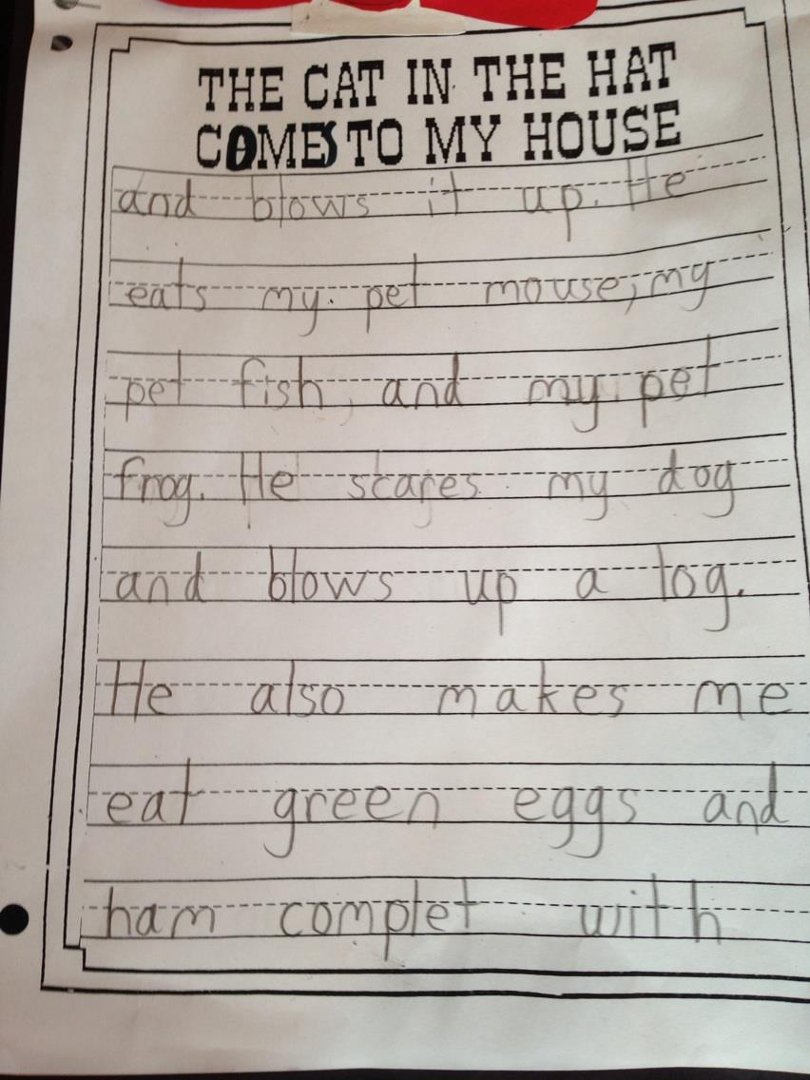 THE CAT IN THE HAT
COMES TO MY HOUSE
and blows it up. He
eats my pet mouse, my
pet fish, and my pet
frog. He scares my dog
and blows up a log.
He also makes me
eat green eggs and
ham complet with